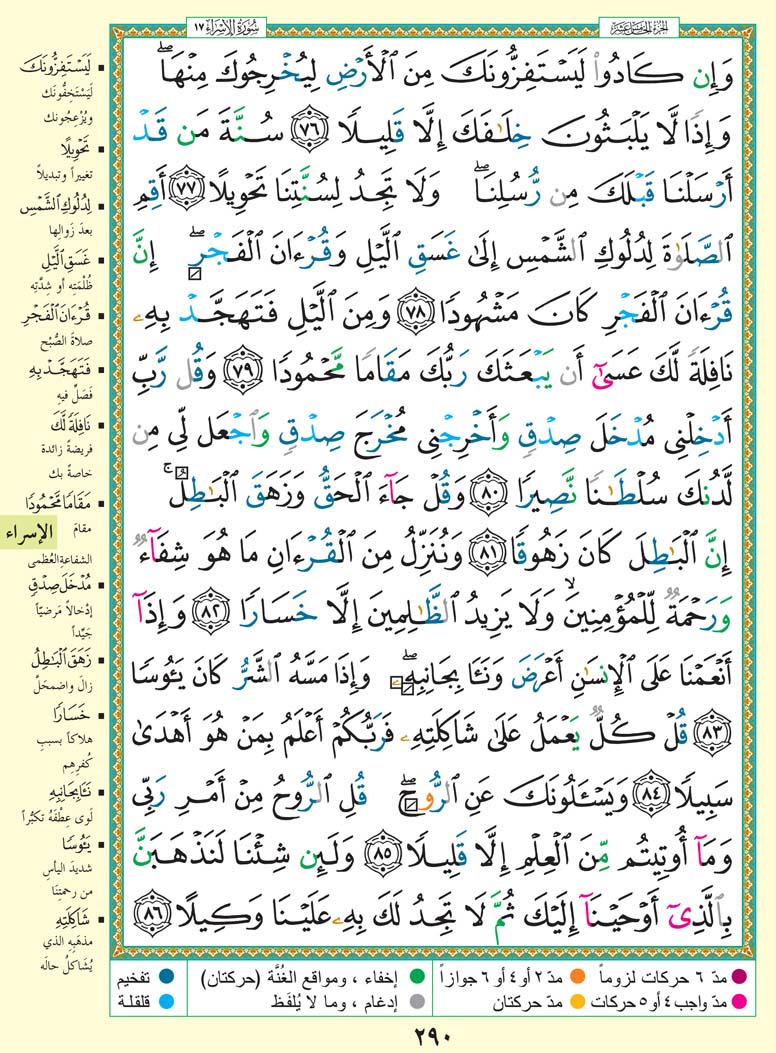 سُورَةُ الإِسْرَاءِ ١٧
الجُزْءُ الخَامِسَ عَشَرَ
وَإِن كَادُوا۟ لَيَسْتَفِزُّونَكَ مِنَ ٱلْأَرْضِ لِيُخْرِجُوكَ مِنْهَا ۖ
وَإِذًا لَّا يَلْبَثُونَ خِلَٰفَكَ إِلَّا قَلِيلًا ٧٦ سُنَّةَ مَن قَدْ
أَرْسَلْنَا قَبْلَكَ مِن رُّسُلِنَا ۖ وَلَا تَجِدُ لِسُنَّتِنَا تَحْوِيلًا ٧٧ أَقِمِ
ٱلصَّلَوٰةَ لِدُلُوكِ ٱلشَّمْسِ إِلَىٰ غَسَقِ ٱلَّيْلِ وَقُرْءَانَ ٱلْفَجْرِ ۖ إِنَّ
قُرْءَانَ ٱلْفَجْرِ كَانَ مَشْهُودًا ٧٨ وَمِنَ ٱلَّيْلِ فَتَهَجَّدْ بِهِۦ
نَافِلَةً لَّكَ عَسَىٰٓ أَن يَبْعَثَكَ رَبُّكَ مَقَامًا مَّحْمُودًا ٧٩ وَقُل رَّبِّ
أَدْخِلْنِى مُدْخَلَ صِدْقٍ وَأَخْرِجْنِى مُخْرَجَ صِدْقٍ وَٱجْعَل لِّى مِن
لَّدُنكَ سُلْطَٰنًا نَّصِيرًا ٨٠ وَقُلْ جَآءَ ٱلْحَقُّ وَزَهَقَ ٱلْبَٰطِلُ ۚ
إِنَّ ٱلْبَٰطِلَ كَانَ زَهُوقًا ٨١ وَنُنَزِّلُ مِنَ ٱلْقُرْءَانِ مَا هُوَ شِفَآءٌ
وَرَحْمَةٌ لِّلْمُؤْمِنِينَ ۙ وَلَا يَزِيدُ ٱلظَّٰلِمِينَ إِلَّا خَسَارًا ٨٢ وَإِذَآ
أَنْعَمْنَا عَلَى ٱلْإِنسَٰنِ أَعْرَضَ وَنَـَٔا بِجَانِبِهِۦ ۖ وَإِذَا مَسَّهُ ٱلشَّرُّ كَانَ يَـُٔوسًا
٨٣ قُلْ كُلٌّ يَعْمَلُ عَلَىٰ شَاكِلَتِهِۦ فَرَبُّكُمْ أَعْلَمُ بِمَنْ هُوَ أَهْدَىٰ
سَبِيلًا ٨٤ وَيَسْـَٔلُونَكَ عَنِ ٱلرُّوحِ ۖ قُلِ ٱلرُّوحُ مِنْ أَمْرِ رَبِّى
وَمَآ أُوتِيتُم مِّنَ ٱلْعِلْمِ إِلَّا قَلِيلًا ٨٥ وَلَئِن شِئْنَا لَنَذْهَبَنَّ
بِٱلَّذِىٓ أَوْحَيْنَآ إِلَيْكَ ثُمَّ لَا تَجِدُ لَكَ بِهِۦ عَلَيْنَا وَكِيلًا ٨٦
▪ لَيَسْتَفِزُّونَكَ
لَيَسْتَخِفُّونَك
ويُزْعِجُونك
▪ تَحْوِيلًا
تغييراً وتبديلاً
▪ لِدُلُوكِ ٱلشَّمْسِ
بعدَ زَوالِها
▪ غَسَقِ ٱلَّيْلِ
ظُلْمَتِه أو شِدَّتِه
▪ قُرْءَانَ ٱلْفَجْرِ
صلاةَ الصُّبْح
▪ فَتَهَجَّدْ بِهِۦ
فَصَلِّ فيهِ
▪ نَافِلَةً لَّكَ
فريضةً زائدة
خاصةً بك
▪ مَقَامًا مَّحْمُودًا
مقامَ
الشفاعةالعُظمى
الإسراء
▪ مُدْخَلَ صِدْقٍ
إدْخالاً مَرضيّاً
جَيِّداً
▪ زَهَقَ ٱلْبَٰطِلُ
زالَ واضمحلَّ
▪ خَسَارًا
هلاكاً بسببِ
كُفرِهِم
▪ نَـَٔا بِجَانِبِهِۦ
لَوى عِطْفَهُ تكبُّراً
▪ يَـُٔوسًا
شديدَ اليأسِ
من رحمتِنَا
▪ شَاكِلَتِهِۦ
مذهَبِه الذي
يُشاكلُ حالَه
مدّ ٦ حركات لزوماً ● مدّ ٢ أو ٤ أو ٦ جوازاً ● إخفاء ، ومواقع الغُنَّة (حركتان) ● تفخيم
مدّ واجب ٤ أو ٥ حركات ● مدّ حركتان ● إدغام ، وما لا يُلفَظ ● قلقلة
٢٩٠